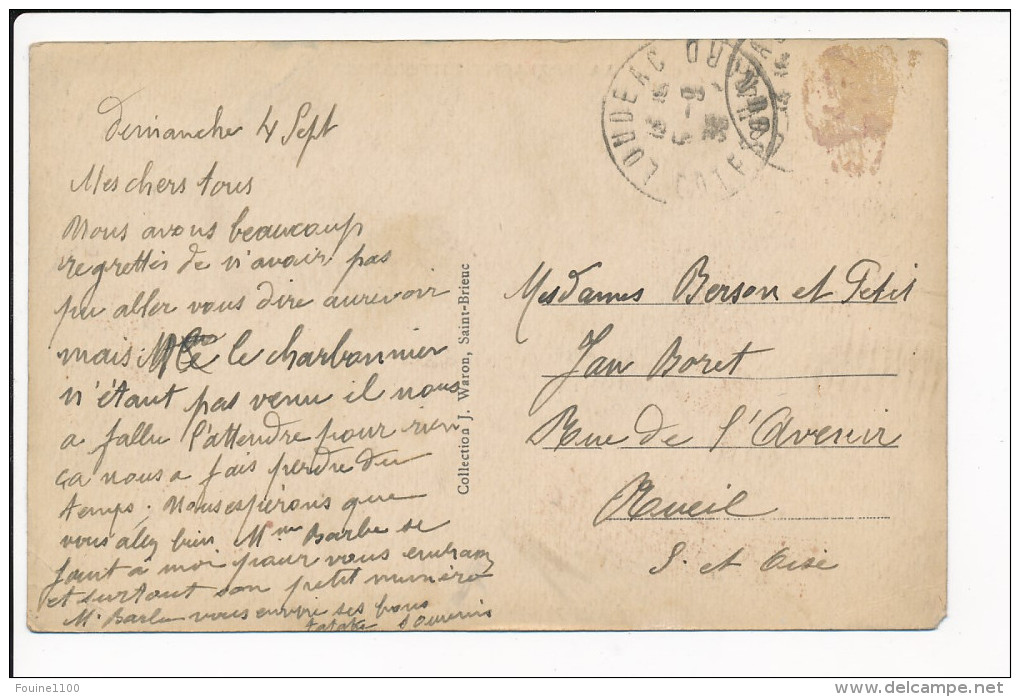 Dimanche 4 Sept
Mes chers tous
Nous avons beaucoup
regrettés de n'avoir pas
pu aller vous dire aurevoir
mais le charbonnier
n'étant pas venu il nous
a fallu l'attendre pour rien
ça nous a fais perdre du
temps. Nous espérons que
vous allez bien Mme Barbe se
joint à moi pour vous embrasser
et surtout son petit numéro
Mr Barbe vous envoie ses bons
souvenirs
Collection J. Waron, Saint-Brieuc
LOUDEAC
Mesdames Berson et Petit
Jan Boret
Rue de l'Avenir
Rueil
S. et Oise
Founie1100
www.delcampe.net